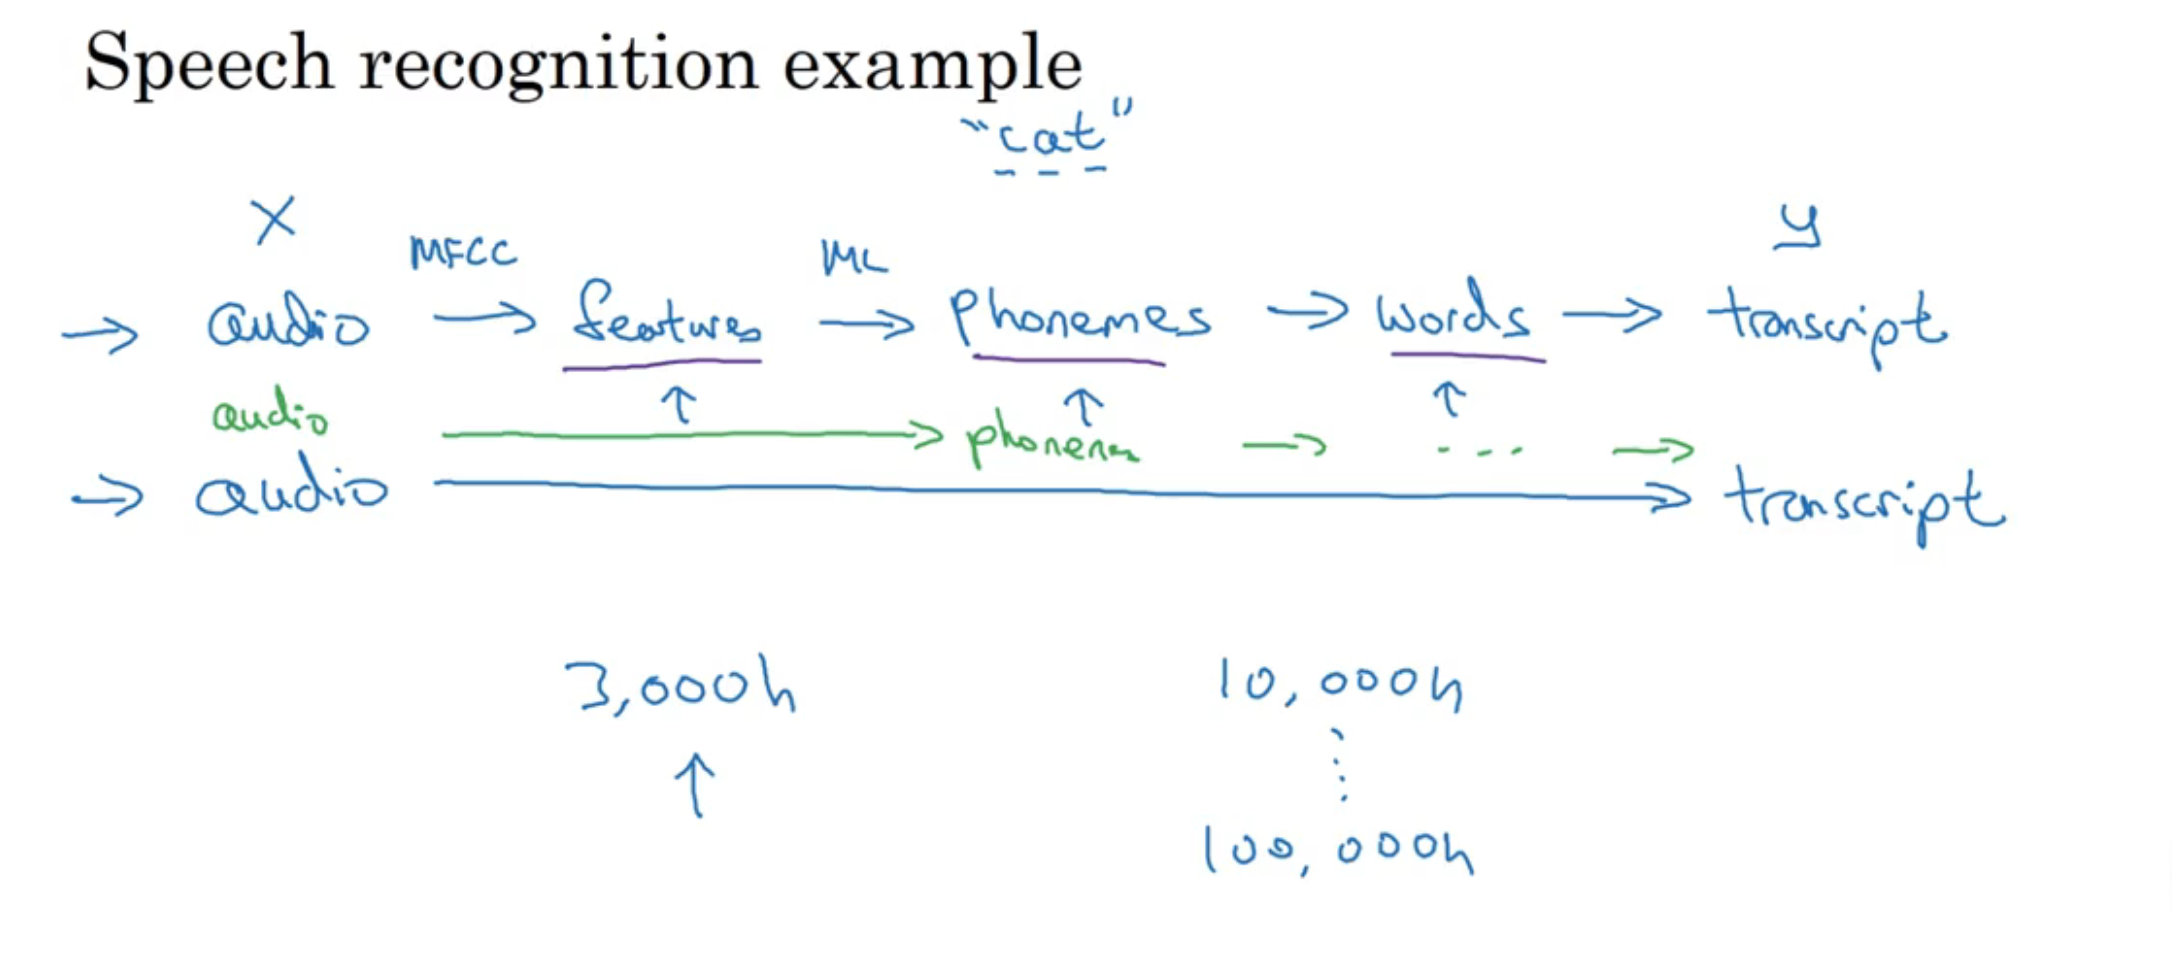 Speech recognition example
"cat"
X y
MFCC ML
→ audio → features → phonemes → words → transcript
↑ ↑ ↑
audio → phonemes → ... → 
→ audio → transcript
3,000h 10,000h
↑ ⋮
100,000h